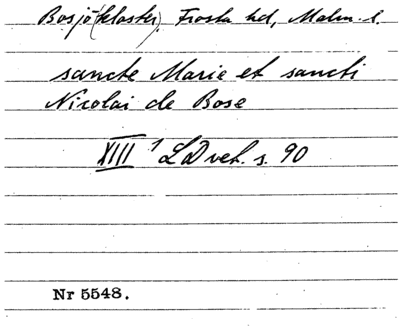 Bosjö(kloster), Frosta hd, Malm. l.
sancte Marie et sancti
Nicolai de Bose
XIIII ¹ LD vet. s. 90
Nr 5548.